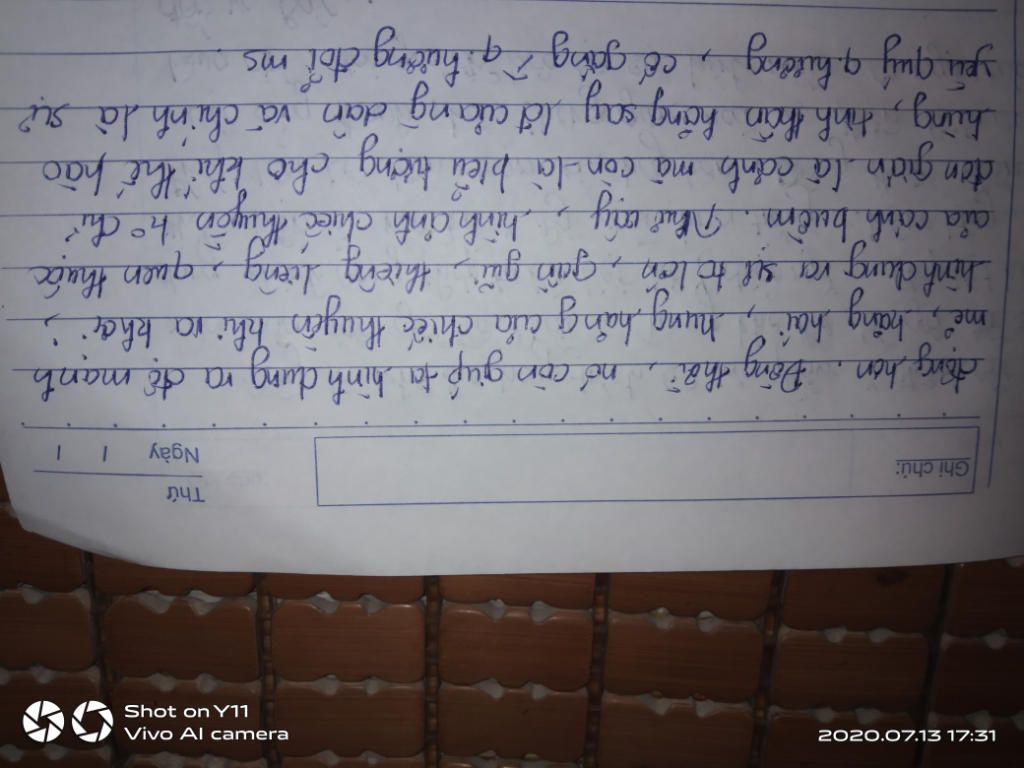 Ghi chú:
Thứ
Ngày / /
động hơn. Đồng thời, nó còn giúp ta hình dung ra độ mạnh
mẽ, hăng hái, hung hăng của chiếc thuyền khi ra khơi,
hình dung ra sự to lớn, gần gũi, thiêng liêng, quen thuộc
của cánh buồm. Như vậy, hình ảnh chiếc thuyền ko chỉ
đơn giản là cảnh mà còn là biểu tượng cho khí thế hào
hùng, tinh thần hăng say lđ của ng dân và chính là sự
yêu quý q.hương, cố gắng vì q.hương đổi ms.
Shot on Y11
Vivo AI camera
2020.07.13 17:31